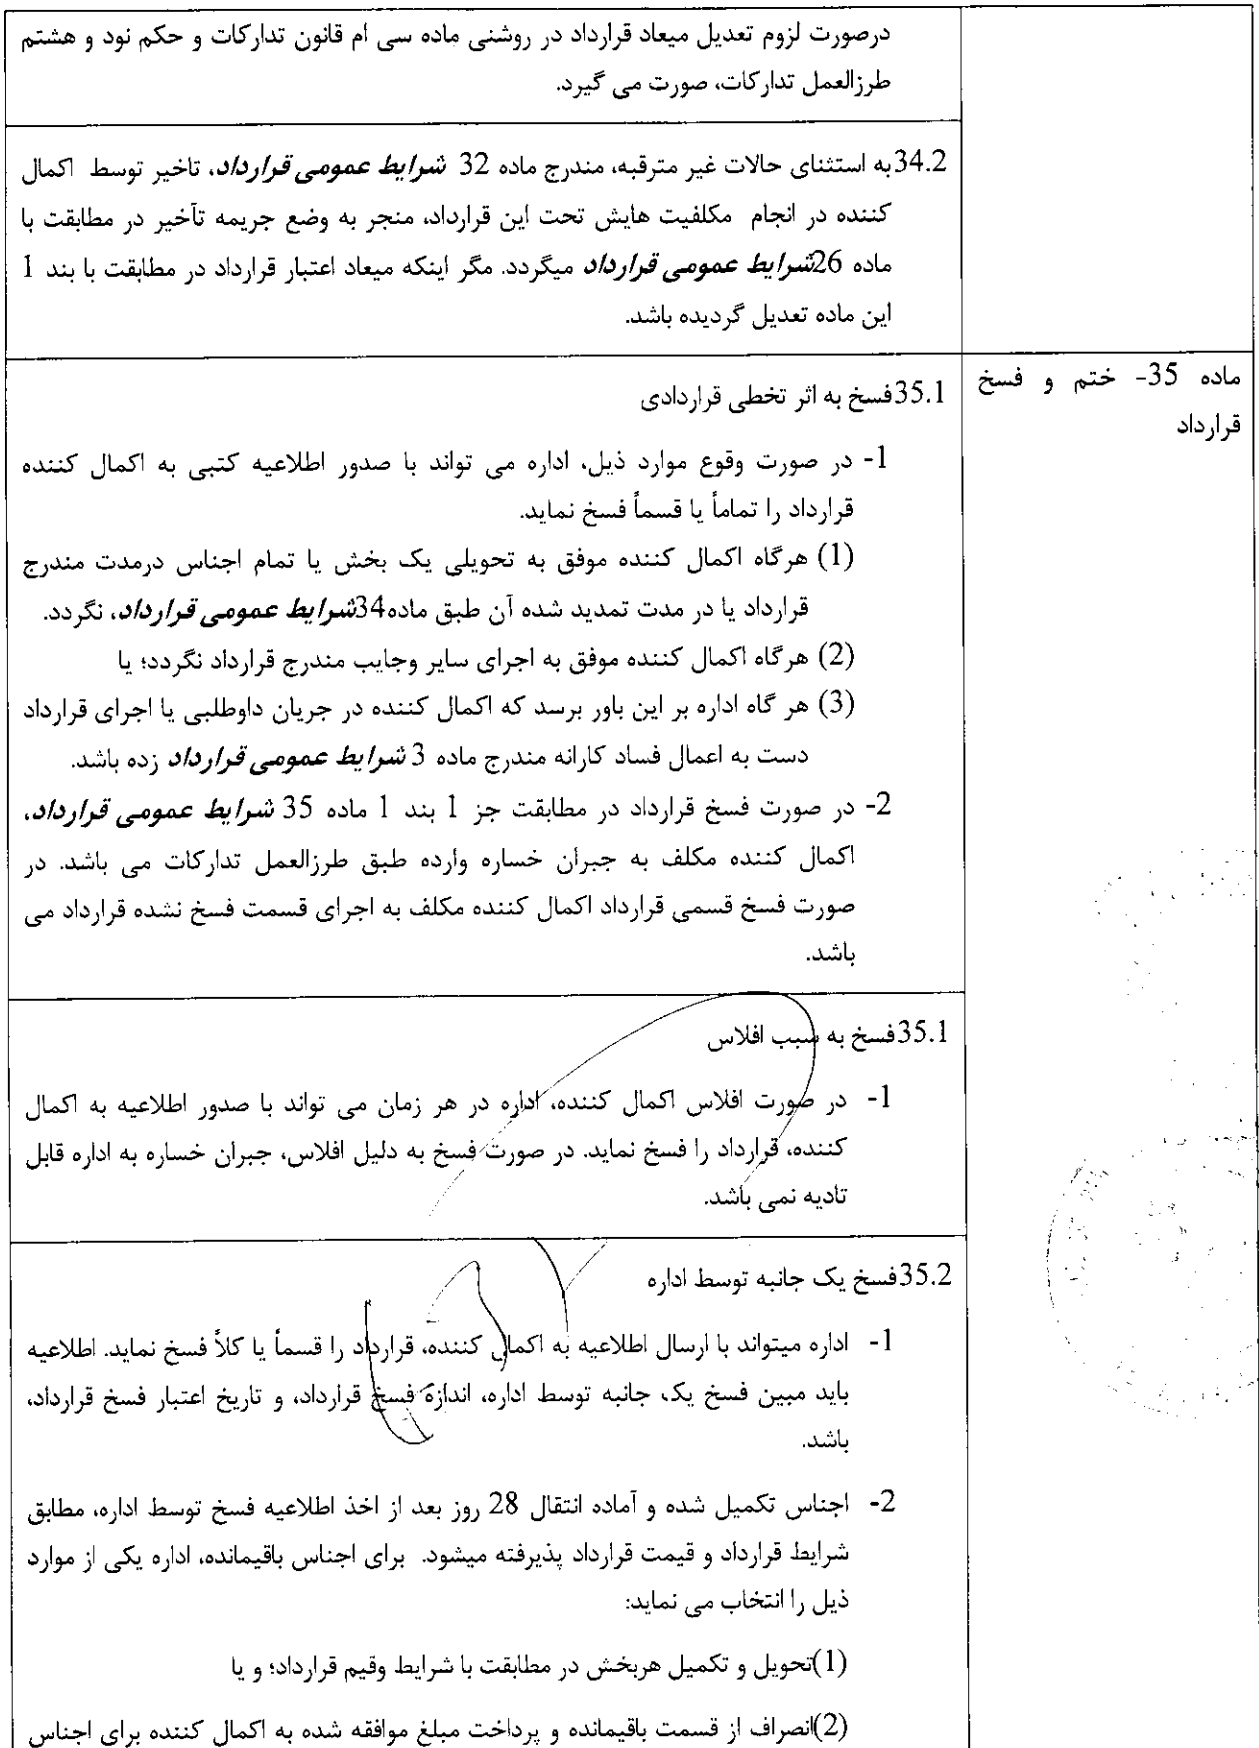 درصورت لزوم تعدیل میعاد قرارداد در روشنی ماده سی ام قانون تدارکات و حکم نود و هشتم
طرزالعمل تدارکات، صورت می گیرد.
34.2به استثنای حالات غیر مترقبه، مندرج ماده 32 شرایط عمومی قرارداد، تاخیر توسط اکمال
کننده در انجام مکلفیت هایش تحت این قرارداد، منجر به وضع جریمه تأخیر در مطابقت با
ماده 26شرایط عمومی قرارداد میگردد. مگر اینکه میعاد اعتبار قرارداد در مطابقت با بند 1
این ماده تعدیل گردیده باشد.
ماده 35- ختم و فسخ
قرارداد
35.1فسخ به اثر تخطی قراردادی
1- در صورت وقوع موارد ذیل، اداره می تواند با صدور اطلاعیه کتبی به اکمال کننده
قرارداد را تماماً یا قسماً فسخ نماید.
(1) هرگاه اکمال کننده موفق به تحویلی یک بخش یا تمام اجناس درمدت مندرج
قرارداد یا در مدت تمدید شده آن طبق ماده34شرایط عمومی قرارداد، نگردد.
(2) هرگاه اکمال کننده موفق به اجرای سایر وجایب مندرج قرارداد نگردد؛ یا
(3) هر گاه اداره بر این باور برسد که اکمال کننده در جریان داوطلبی یا اجرای قرارداد
دست به اعمال فساد کارانه مندرج ماده 3 شرایط عمومی قرارداد زده باشد.
2- در صورت فسخ قرارداد در مطابقت جز 1 بند 1 ماده 35 شرایط عمومی قرارداد،
اکمال کننده مکلف به جبران خساره وارده طبق طرزالعمل تدارکات می باشد. در
صورت فسخ قسمی قرارداد اکمال کننده مکلف به اجرای قسمت فسخ نشده قرارداد می
باشد.
35.1فسخ به سبب افلاس
1- در صورت افلاس اکمال کننده، اداره در هر زمان می تواند با صدور اطلاعیه به اکمال
کننده، قرارداد را فسخ نماید. در صورت فسخ به دلیل افلاس، جبران خساره به اداره قابل
تادیه نمی باشد.
35.2فسخ یک جانبه توسط اداره
1- اداره میتواند با ارسال اطلاعیه به اکمال کننده، قرارداد را قسماً یا کلاً فسخ نماید. اطلاعیه
باید مبین فسخ یک جانبه توسط اداره، اندازه فسخ قرارداد، و تاریخ اعتبار فسخ قرارداد،
باشد.
2- اجناس تکمیل شده و آماده انتقال 28 روز بعد از اخذ اطلاعیه فسخ توسط اداره، مطابق
شرایط قرارداد و قیمت قرارداد پذیرفته میشود. برای اجناس باقیمانده، اداره یکی از موارد
ذیل را انتخاب می نماید:
(1)تحویل و تکمیل هربخش در مطابقت با شرایط وقیم قرارداد؛ و یا
(2)انصراف از قسمت باقیمانده و پرداخت مبلغ موافقه شده به اکمال کننده برای اجناس